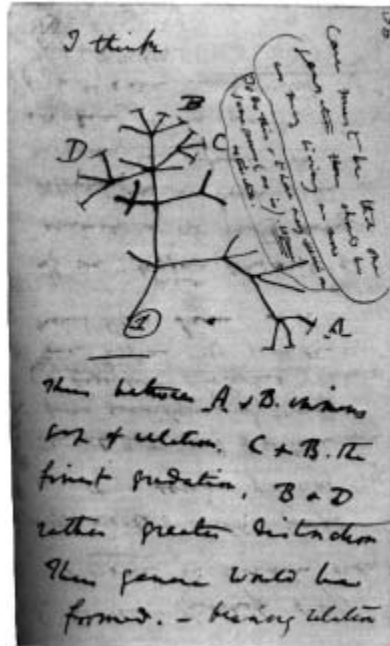 I think
B
D
C
A
1
Case must be that one
generation then should be
as many living as now
To do this & to have many species in
same genus (as is) requires
extinction
Thus between A & B. immens
gap of relation. C & B. the
finest gradation, B & D
rather greater distinction
Thus genera would be
formed. — bearing relation